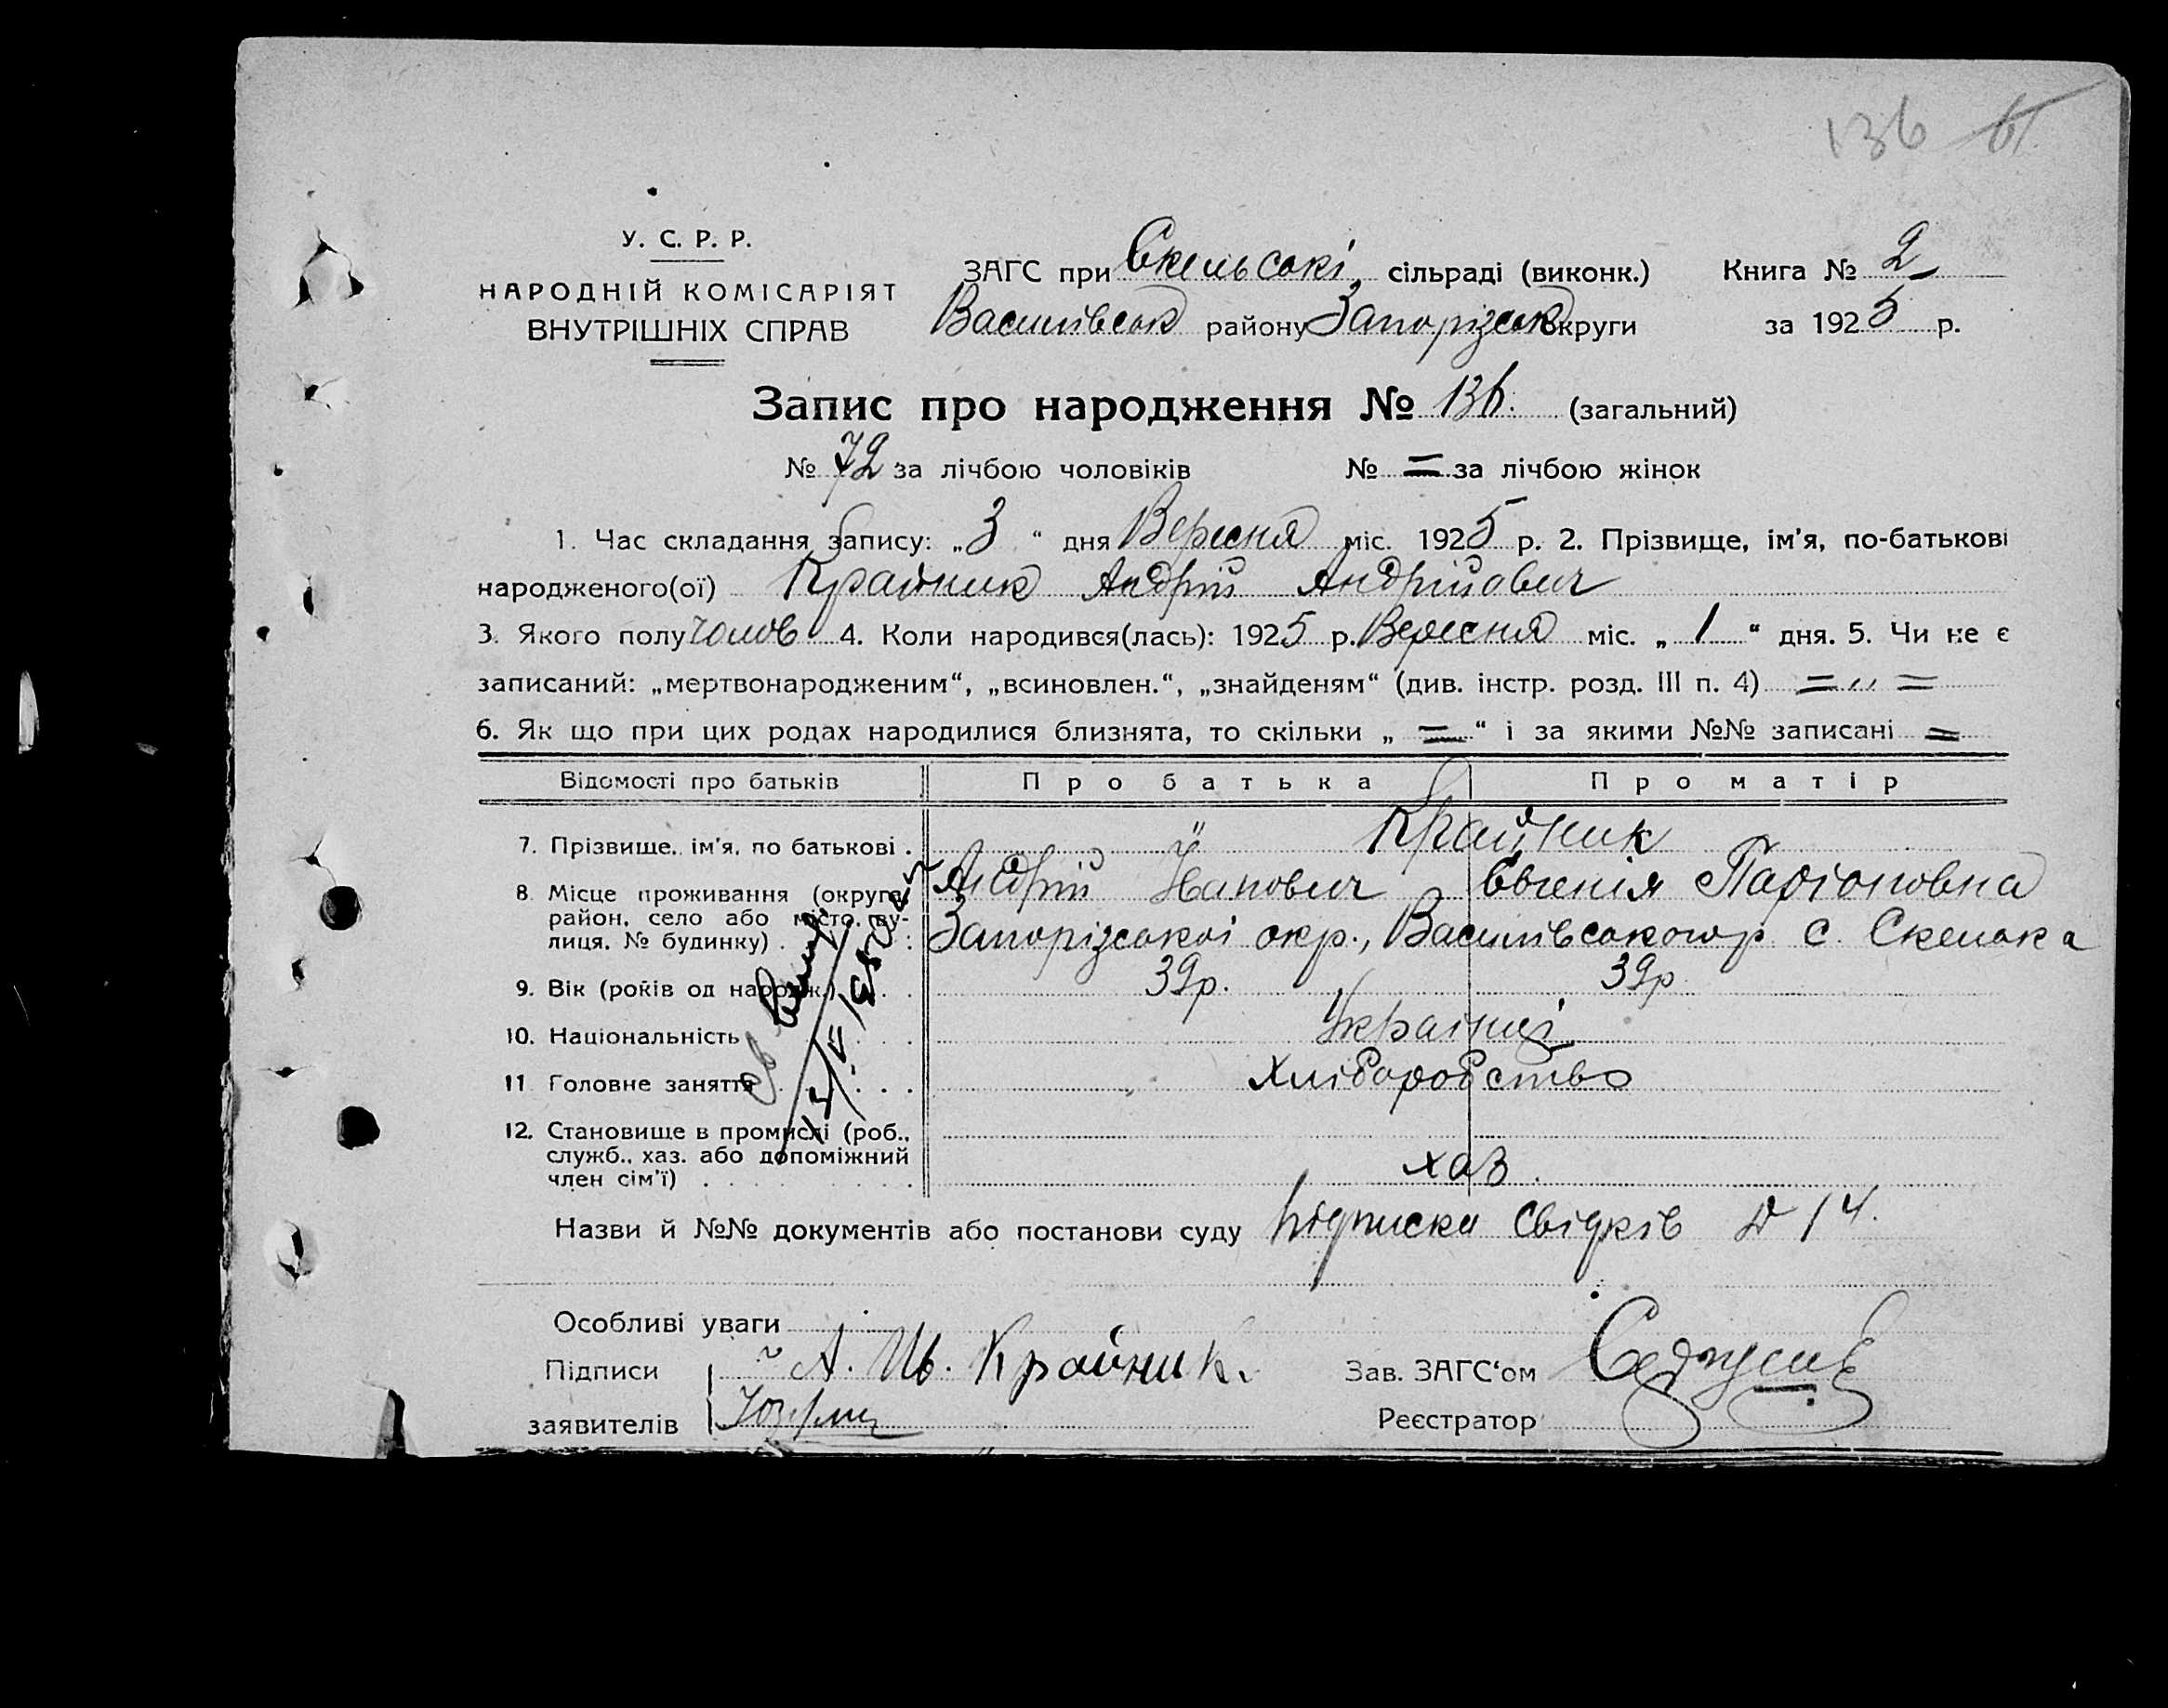 136
У. С. Р. Р.
НАРОДНІЙ КОМІСАРІЯТ
ВНУТРІШНІХ СПРАВ
ЗАГС при Скельські сільраді (виконк.) Книга № 2
Василівськ району Запорізськ округи за 1925 р.
Запис про народження № 136. (загальний)
№ 72 за лічбою чоловіків № = за лічбою жінок
1. Час складання запису: „3“ дня Вересня міс. 1925 р. 2. Прізвище, ім'я, по-батькові
народженого(ої) Крайник Андрій Андрійович
3. Якого полу чолов 4. Коли народився(лась): 1925 р. Вересня міс. „1“ дня. 5. Чи не є
записаний: „мертвонародженим“, „всиновлен.“, „знайденям“ (див. інстр. розд. III п. 4) = „ =
6. Як що при цих родах народилися близнята, то скільки „=“ і за якими №№ записані =
Відомості про батьків Про батька Про матір
7. Прізвище, ім'я, по батькові . Крайник
Андрій Іванович Євгенія
8. Місце проживання (округа,
район, село або місто, ву-
лиця, № будинку) . Запорізської окр., Василівського р. с. Скелька
9. Вік (років од народж.) 39р. 39р
10. Національність Українці
11. Головне заняття Хліборобство
12. Становище в промислі (роб.,
служб., хаз. або допоміжний
член сім'ї) хаз.
Назви й №№ документів або постанови суду Підписка свідків № 14.
Особливі уваги
Підписи А. Ів. Крайник.
заявителів
Зав. ЗАГС'ом
Реєстратор